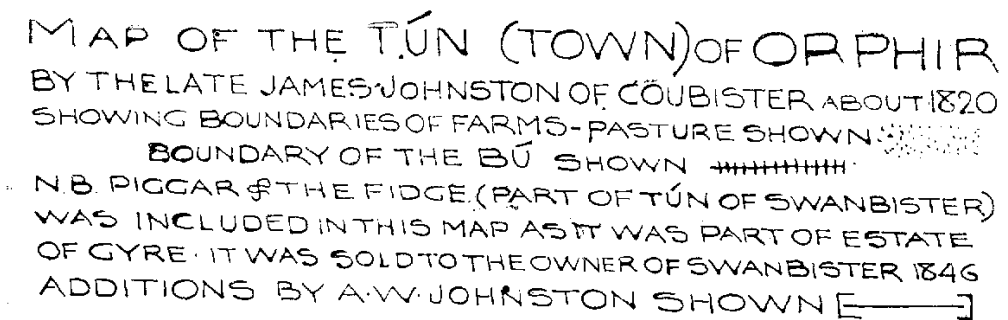 MAP OF THE TÚN (TOWN) OF ORPHIR
BY THE LATE JAMES JOHNSTON OF COUBISTER ABOUT 1820
SHOWING BOUNDARIES OF FARMS-PASTURE SHOWN
BOUNDARY OF THE BÚ SHOWN
N.B. PIGGAR & THE FIDGE (PART OF TÚN OF SWANBISTER)
WAS INCLUDED IN THIS MAP AS IT WAS PART OF ESTATE
OF GYRE. IT WAS SOLD TO THE OWNER OF SWANBISTER 1846
ADDITIONS BY A.W. JOHNSTON SHOWN [———]